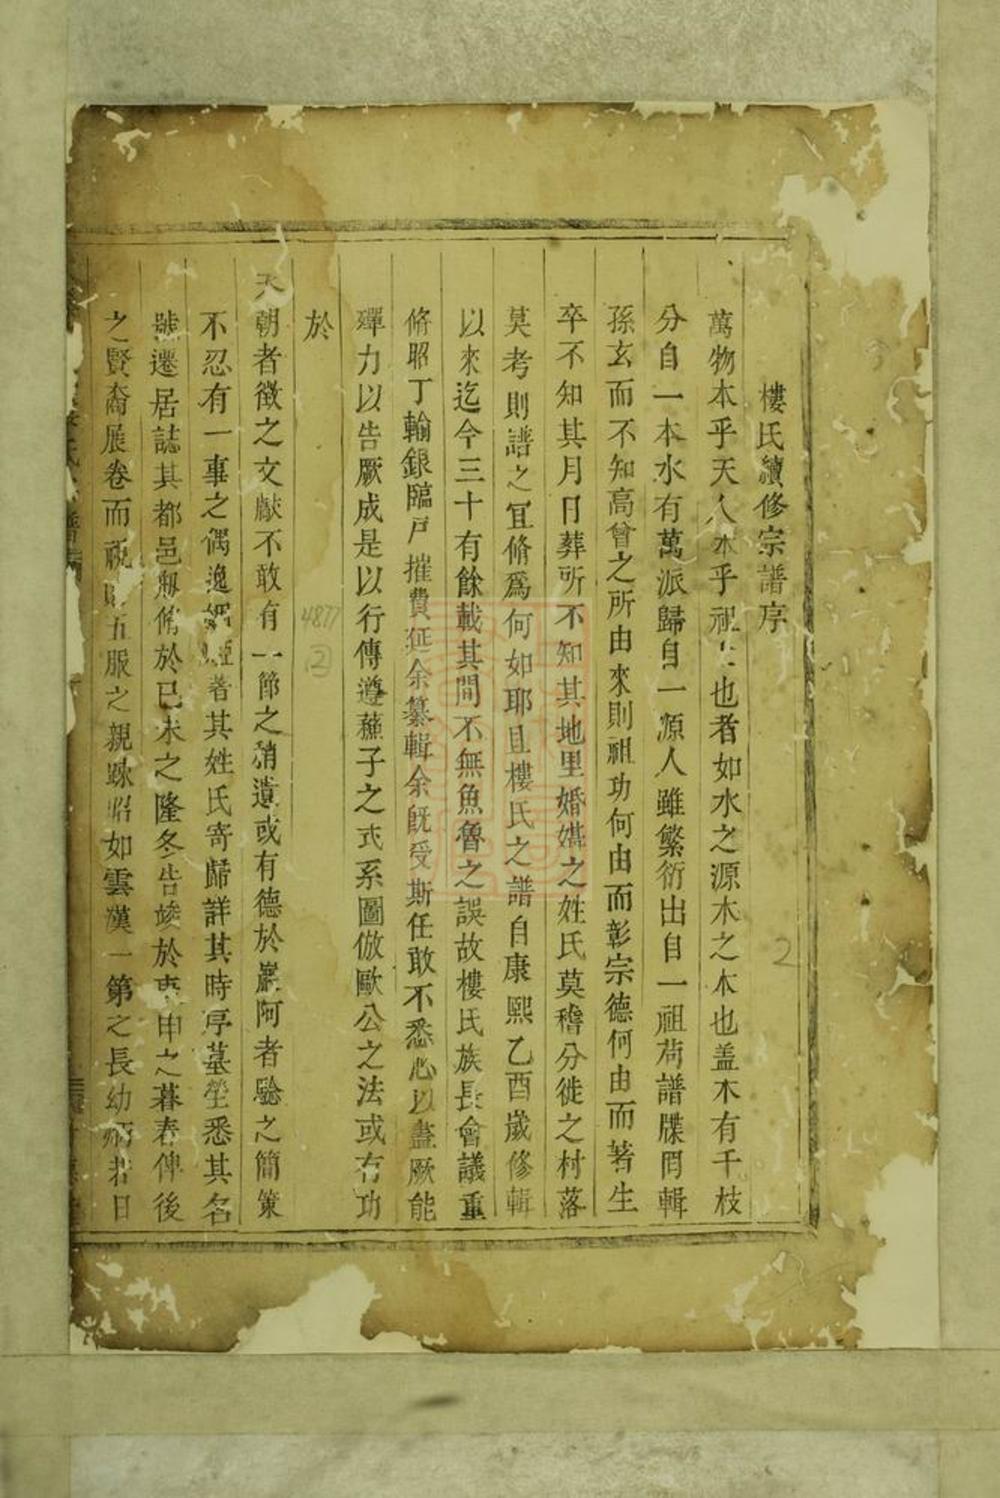 樓氏續修宗譜序
萬物本乎天人本乎祖也者如水之源木之本也盖木有千枝
分自一本水有萬派歸自一源人雖繁衍出自一祖苟譜牒罔輯
孫玄而不知高曾之所由來則祖功何由而彰宗德何由而著生
卒不知其月日葬所不知其地里婚媾之姓氏莫稽分徙之村落
莫考則譜之宜脩爲何如耶且樓氏之譜自康熙乙酉歲修輯
以來迄今三十有餘載其間不無魚魯之誤故樓氏族長會議重
脩昭丁輸銀臨戸摧費延余纂輯余既受斯任敢不悉心以盡厥能
殫力以告厥成是以行傳遵蘇子之式系圖倣歐公之法或有功
於
天朝者徵之文獻不敢有一節之稍遺或有德於巖阿者驗之簡策
不忍有一事之偶逸婚著其姓氏寄歸詳其時序墓塋悉其名
號遷居誌其都邑脩於已未之隆冬告竣於庚申之暮春俾後
之賢裔展卷而視五服之親踈昭如雲漢一第之長幼炳若日
4877
②
2